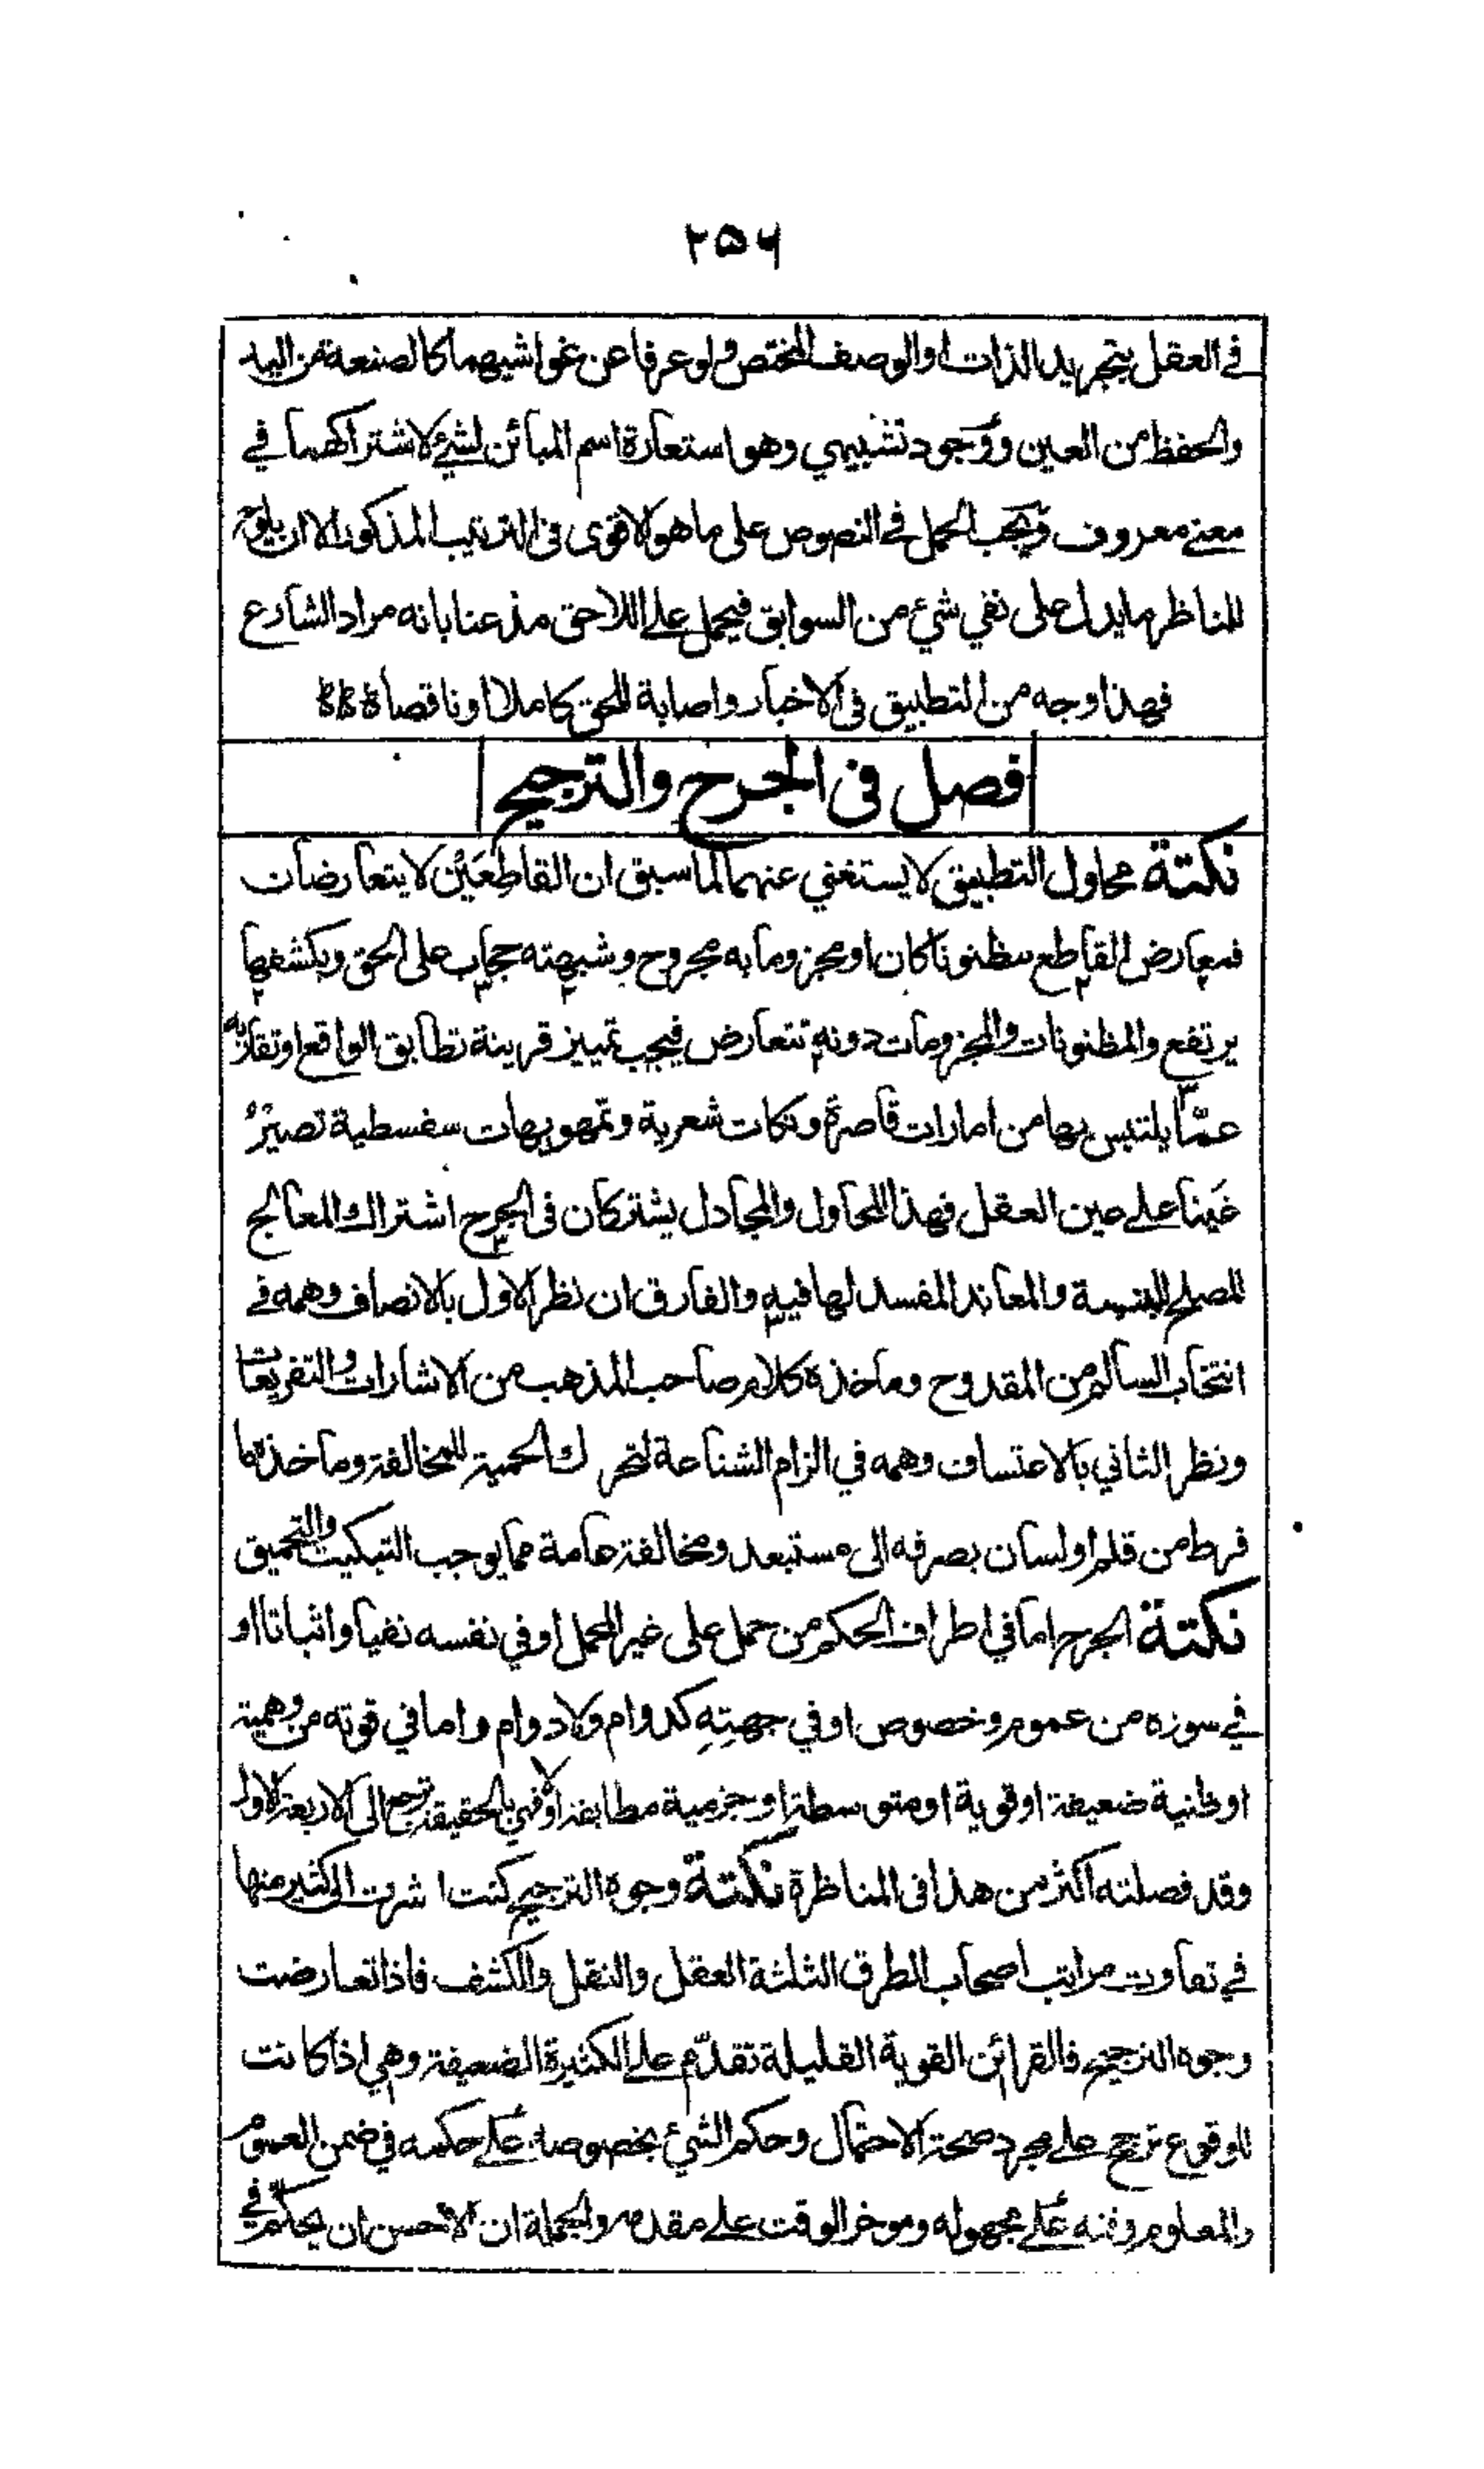 ۲۵۶
في العقل بتجريد الذات او الوصف المختص ولو عرفا عن غواشيهما كالصنعة من اليد
والحفظ من العين ووجود تشبيهي وهو استعارة اسم المبائن لشئ لاشتراكهما في
معنى معروف ويجب الحمل في النصوص على ما هو الاقوى في الترتيب المذكور الا ان يلوح
للناظر ما يدل على نفي شئ من السوابق فيحمل على اللاحق مذعنا بانه مراد الشارع
فهذا وجه من التطبيق في الاخبار واصابة للحق كاملا او ناقصا
فصل في الجرح والترجيح
نكتة محاول التطبيق لا يستغني عنهما لما سبق ان القاطعَيْن لا يتعارضان
فمعارض القاطع مظنونا كان او مجزوما به مجروح وشبهته حجاب على الحق وبكشفها
يرتفع والمظنونات والمجزومات دونه تتعارض فيجب تمييز قرينة تطابق الواقع او تقاربه
عمّا يلتبس بها من امارات قاصرة ونكات شعرية وتمويهات سفسطية تصير
غينا على عين العقل فهذا المحاول والمجادل يشتركان في الجرح اشتراك المعالج
المصلح للبنية والمعاند المفسد لها فيه والفارق ان نظر الاول بالانصاف وهمه في
انتخاب السالم من المقدوح وماخذه كلام صاحب المذهب من الاشارات والتفريعات
ونظر الثاني بالاعتساف وهمه في الزام الشناعة لتحرك الحمية للمخالفة وماخذه ما
فرط من قلم او لسان بصرفه الى مستبعد ومخالفة عامة مما يوجب التبكيت والتحميق
نكتة الجرح اما في اطراف الحكم من حمل على غير المحمل او في نفسه نفيا واثباتا او
في سوره من عموم وخصوص او في جهتِهِ كدوام ولا دوام واما في قوته من وهمية
او ظنية ضعيفة او قوية او متوسطة او جزمية مطابقة او لا فهي بالحقيقة ترجع الى الاربعة الاول
وقد فصلته اكثر من هذا في المناظرة نكتة وجوه الترجيح كنت اشرت الى كثير منها
في تفاوت مراتب اصحاب الطرق الثلثة العقل والنقل والكشف فاذا تعارضت
وجوه الترجيح فالقرائن القوية القليلة تقدّم على الكثيرة الضعيفة وهي اذا كانت
للوقوع ترجح على مجرد صحة الاحتمال وحكم الشئ بخصوصه على حكمه في ضمن العموم
والمعلوم وقته على مجهوله وموخر الوقت على مقدمه والجملة ان الاحسن ان يحكم في